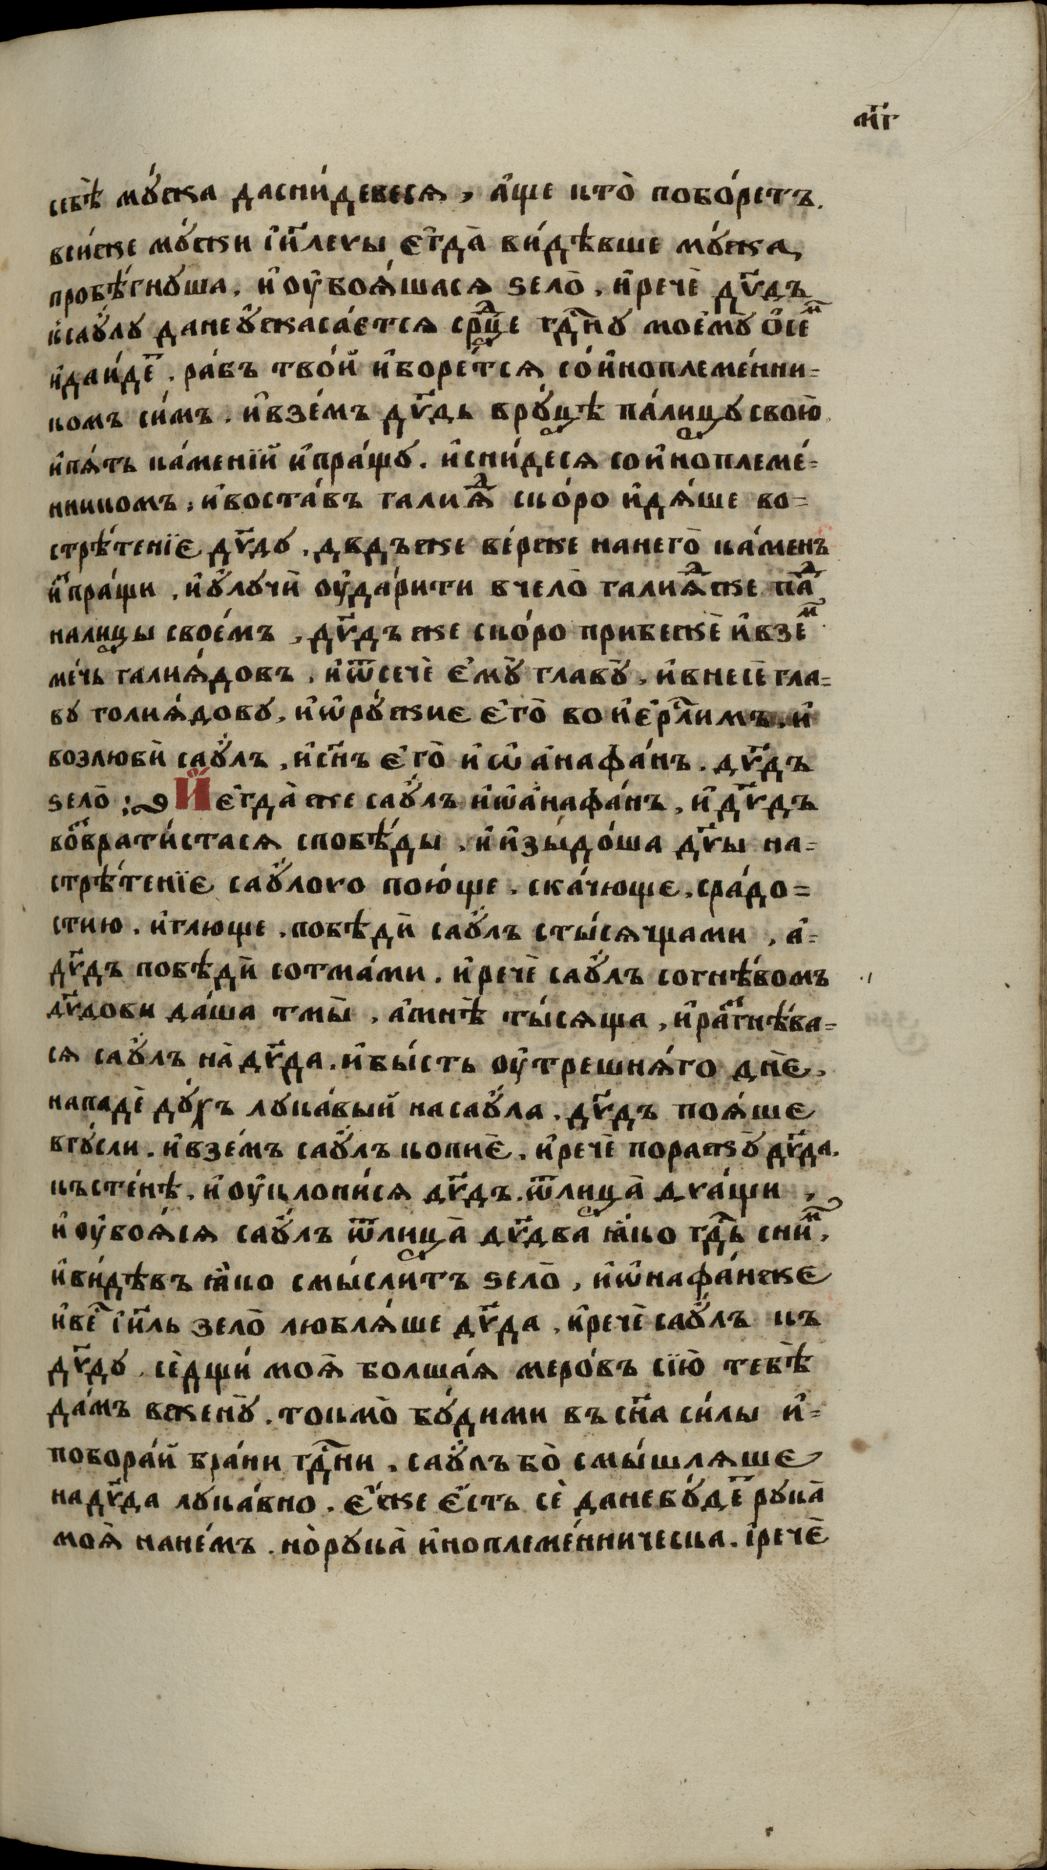 м҃г
себѣ̀ мꙋ́жа даснидевеся, а҆́ще кто̀ побо́ретъ.
вси́же мꙋ́жи і҆и҃левы є҆гда̀ ви́дѣвше мꙋ́жа,
пробѣ́гнꙋша, и҆ оу҆боя́шася ѕело̀, и҆речѐ дв҃дъ
ксаꙋ́лꙋ данеꙋ҆жаса́ется срⷣце гдⷭ҇нꙋ моемꙋ̀ ѡ҆сеⷨ
и҆даи́деⷮ. ра́бъ тво́й и҆боре́тся со́и҆ноплеме́нни=
комъ си́мъ. и҆взе́мъ дв҃дь врꙋ́цѣ па́лицꙋ свою̀
и҆пя́ть ка́менїй и҆пра́щꙋ. и҆сни́деся сои҆ноплеме́=
нникомъ, и҆воста́въ галиꙗⷣ ско́ро и҆дя́ше во=
стрѣ́тенїе дв҃дꙋ, двдъже ве́рже нанего̀ ка́менъ
и҆пра́щи, и҆ꙋ҆лꙋчѝ оу҆да́рити вчело̀ галиꙗⷣже паⷣ
налицы свое́мъ, дв҃дъ же ско́ро прибежѐ и҆взеⷨ
ме́чь галия́довъ, и҆ѿсечѐ є҆мꙋ̀ главꙋ̀, и҆внесѐ гла=
вꙋ голия́довꙋ, и҆ѡ҆рꙋ́жие є҆го̀ во и҆є҆рⷭ҇лимъ. и҆
возлюбѝ саꙋ́лъ, и҆сн҃ъ є҆го̀ и҆ѡа҆нафа́нъ. дв҃дъ
ѕело̀ : И҆ є҆гда̀ же саꙋ́лъ и҆ѡа҆нафа́нъ, и҆ дв҃дъ
воⷥврати́стася спобѣ́ды, и҆ и҆зыдо́ша дв҃ы на=
стрѣ́тенїе саꙋ́лого пою́ще, ска́чюще, сра́до=
стию, и҆глюще, побѣдѝ саꙋ́лъ сты́сящами, а҆=
дв҃дъ побѣдѝ сотма́ми. и҆речѐ саꙋ́лъ согнѣ́вомъ
дв҃дови да́ша тмы̀, а҆мнѣ̀ ты́сяща, и҆раⷥгнѣ́ва=
ся саꙋ́лъ на̀ дв҃да. и҆бы́сть оу҆трешня́го дн҃е,
нападѐ дꙋ́хъ лꙋка́вый насаꙋ́ла, дв҃дъ поя́ше
вгꙋ́сли. и҆взе́мъ саꙋ́лъ копиѐ, и҆речѐ поражꙋ̀ дв҃да.
къстенѣ̀, и҆ оу҆клони́ся дв҃дъ. ѿлица̀ два́щи,
и҆ оу҆боя́ся саꙋ́лъ ѿлица̀ дв҃два ꙗ҆́ко гдⷭ҇ь сниⷨ,
и҆ви́дѣвъ ꙗ҆́ко смы́слитъ ѕело̀, и҆ѡ҆нафа́нже
и҆веⷭ҇ і҆и҃ль зело̀ любля́ше дв҃да, и҆речѐ саꙋ́лъ къ
дв҃дꙋ, сѐдщи́ моя̀ болша́я меро́въ сїю̀ тебѣ̀
да́мъ вженꙋ̀. токмо̀ бꙋ́дими въ сн҃а си́лы и҆=
побора́й бра́ни гдⷭ҇ни, саꙋ́лъ бо̀ смы́шляше
надв҃да лꙋка́вно. є҆́же є҆́сть сѐ данебꙋ́деⷮ рꙋка̀
моя̀ нане́мъ. но̀ рꙋка̀ и҆ноплеме́нническа. і҆речѐ